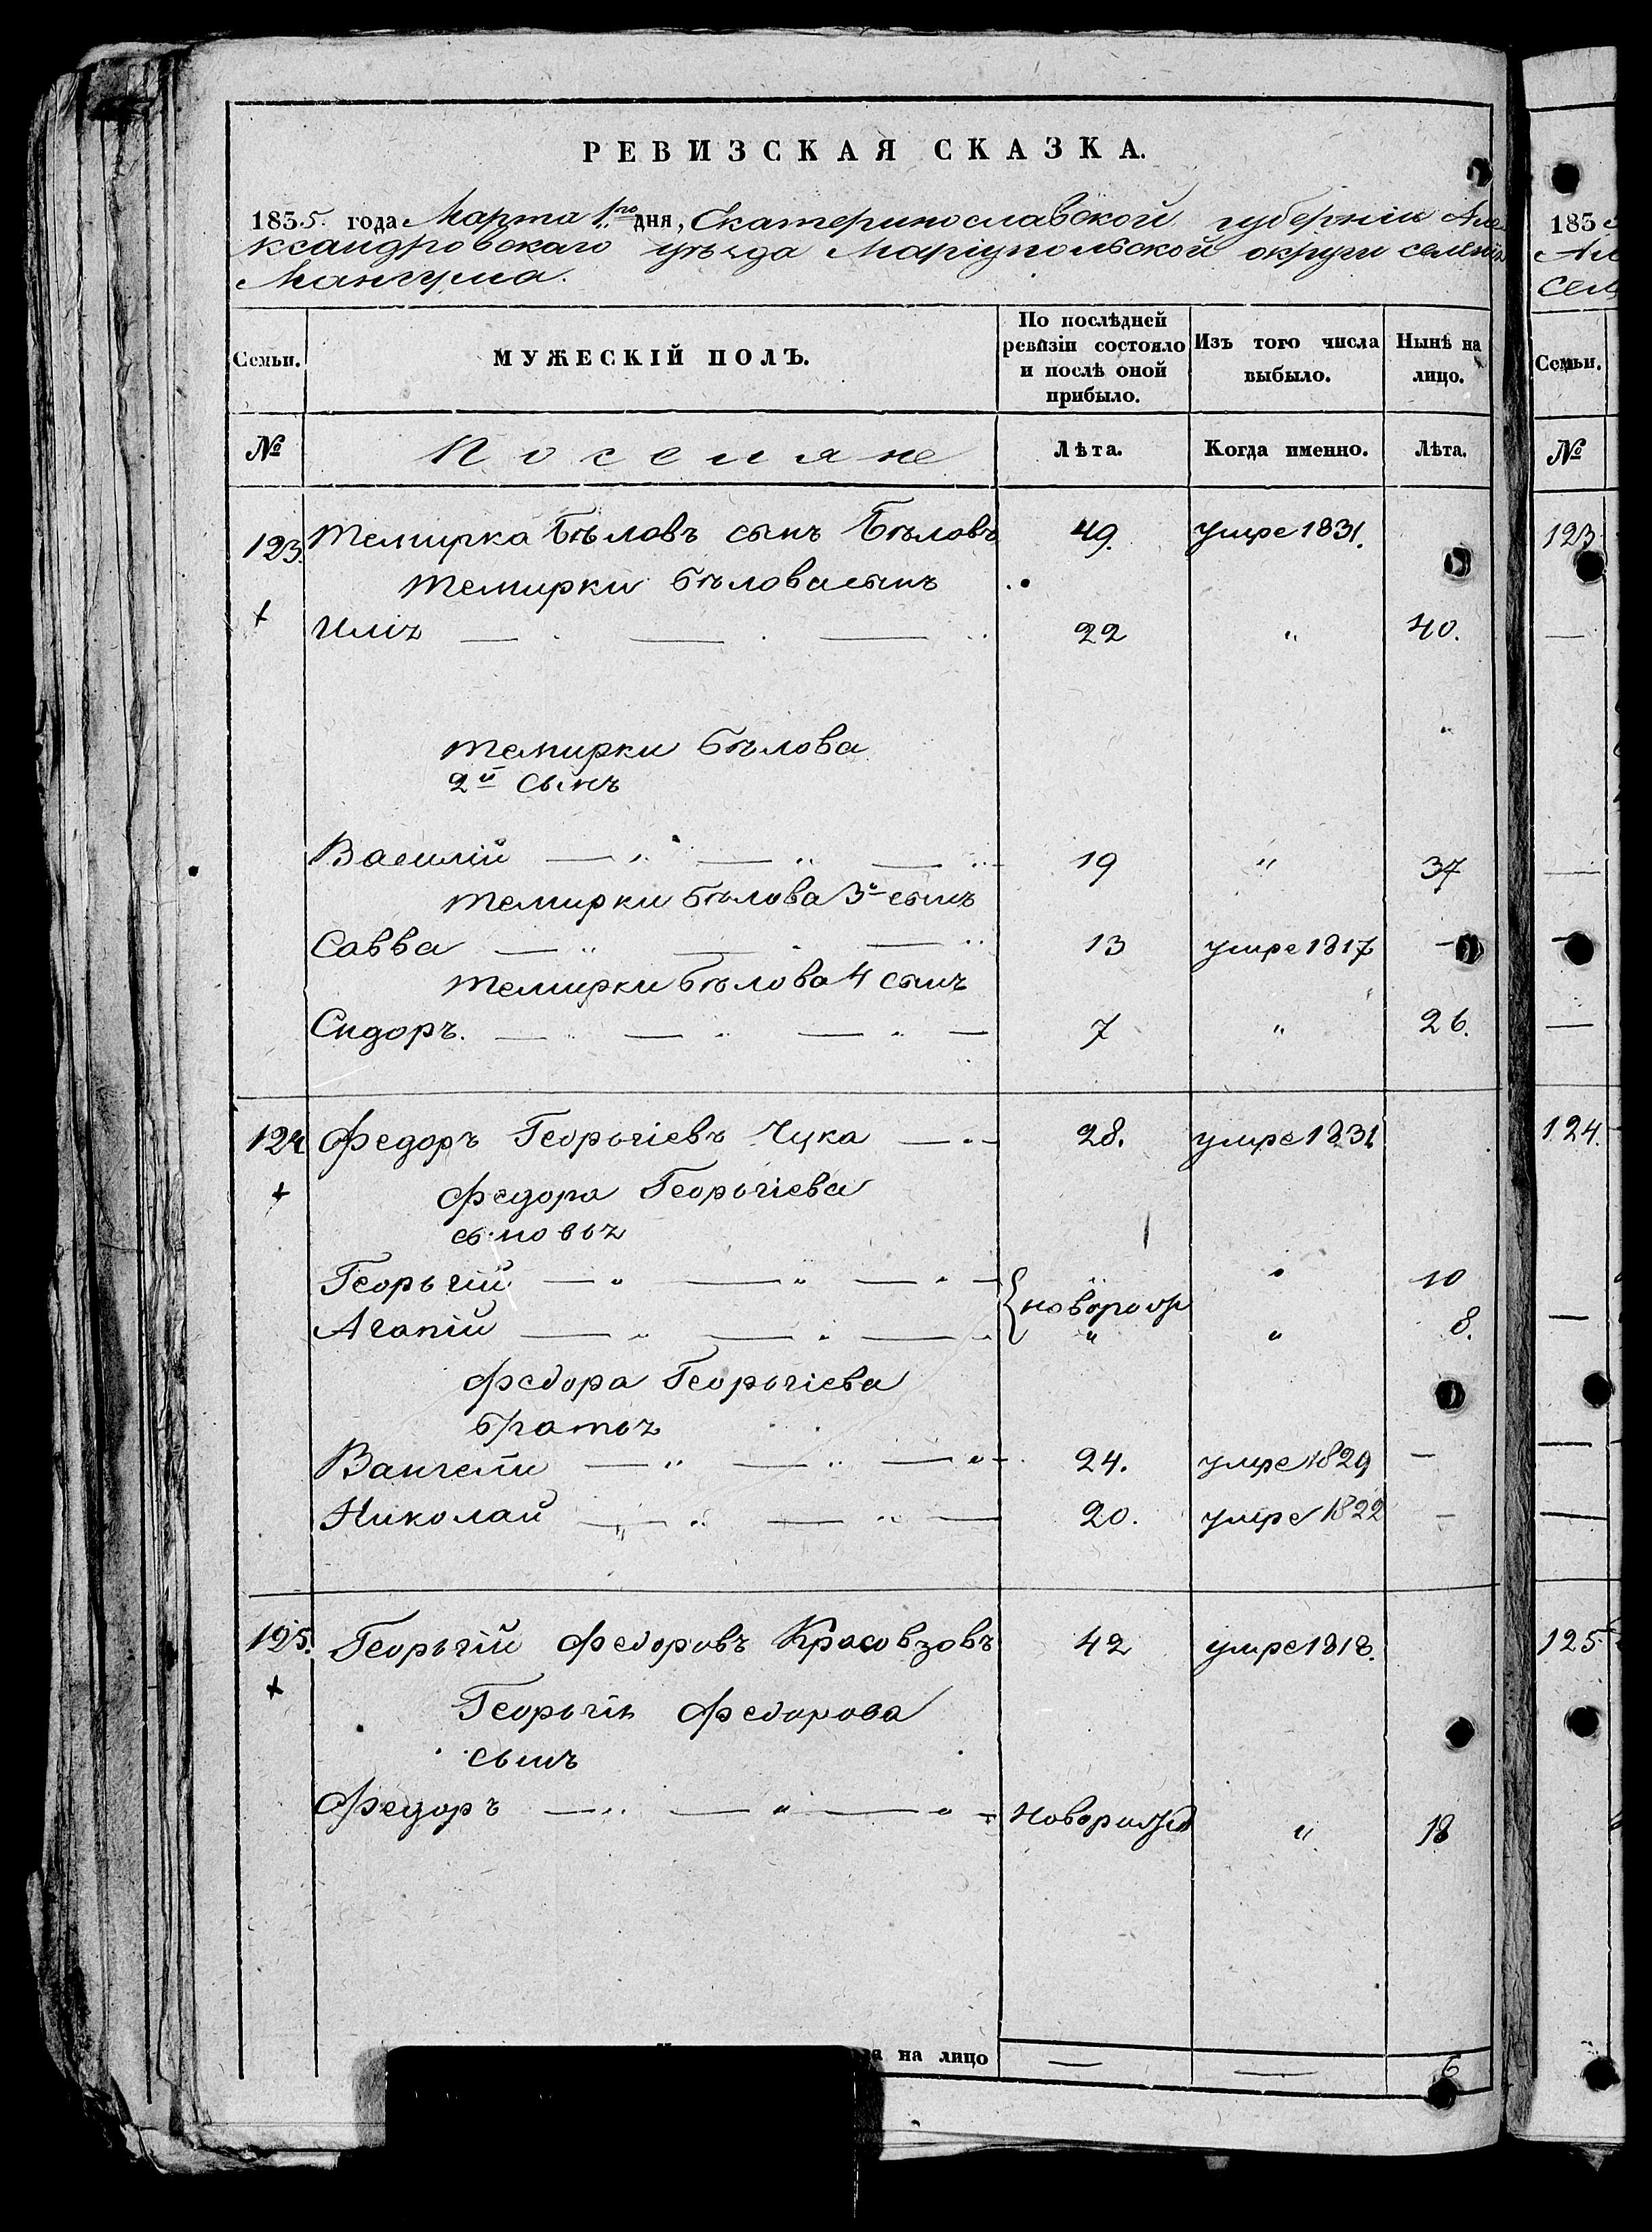 РЕВИЗСКАЯ СКАЗКА.
1835 года Марта 1го дня, Екатеринославской губернiи Але
ксандровскаго уѣзда Марiупольской округи селенiя
Мангуша.
Семьи. МУЖЕСКІЙ ПОЛЪ. По послѣдней ревизіи состояло и послѣ оной прибыло. Изъ того числа выбыло. Нынѣ на лицо.
№ Поселяне Лѣта. Когда именно. Лѣта.
123. Темирка Бѣловъ сынъ Бѣловъ 49. умре 1831.
Темирки Бѣлова сынъ
+ Илiя — . — . — .. 22 " 40.
Темирки Бѣлова
2й сынъ
Василiй — " — " — " 19 " 37
Темирки Бѣлова 3й сынъ
Савва — " — . — " 13 умре 1817 —
Темирки Бѣлова 4 сынъ
Сидоръ. — " — " — " — 7 " 26.
124 Федоръ Георьгiевъ Чука — " — 28. умре 1831
+ Федора Георьгiева
сыновья
Георьгiй — " — " — " — { новорож " 10
Агапiй — " — " — " " " 8.
Федора Георьгiева
братья
Вангели — " — " — " — 24. умре 1829 —
Николай — " — " — 20. умре 1822 —
125. Георьгiй Федоровъ 42 умре 1818.
+ Георьгiя Федорова
сынъ
Федоръ — " — " — " — Новорожд " 18
на лицо — — 6
1835
Але
сел
Семьи.
№
123
—
—
—
—
124.
—
—
—
125